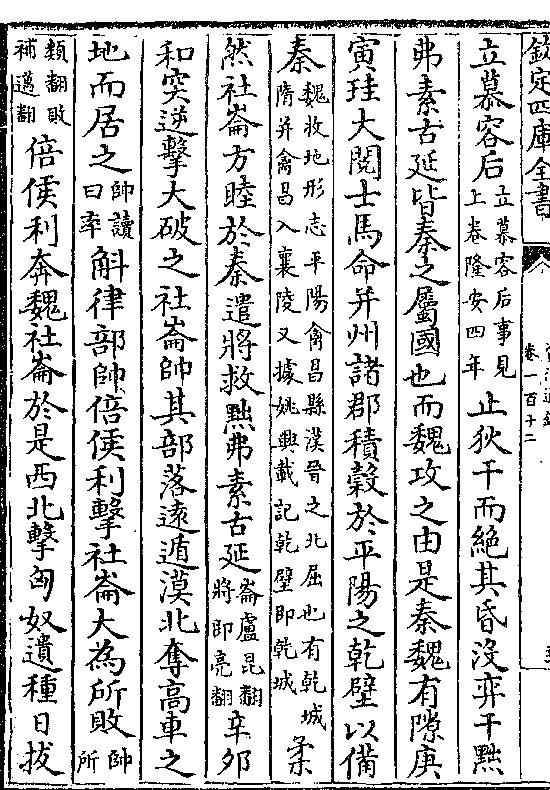 欽定四庫全書
卷一百十二
立慕容后立慕容后事見上卷隆安四年止狄干而絶其昏没弈干黜
弗素古延皆秦之屬國也而魏攻之由是秦魏有隙庚
寅珪大閲士馬命并州諸郡積穀於平陽之乾壁以備
秦魏收地形志平陽禽昌縣漢晉之北屈也有乾城隋并禽昌入襄陵又據姚興載記乾壁即乾城柔
然社崘方睦於秦遣將救黜弗素古延崘盧昆翻將即亮翻辛卯
和突逆擊大破之社崘帥其部落遠遁漠北奪高車之
地而居之帥讀曰率斛律部帥倍侯利擊社崘大為所敗帥所
類翻敗補邁翻倍侯利奔魏社崘於是西北擊匈奴遺種日拔